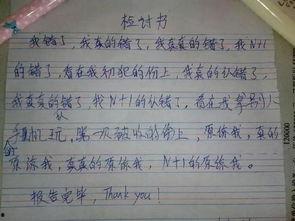 检讨书
我错了,我真的错了,我真真的错了,我N+1
的错了,看在我初犯的份上,我真的认错了,
我真真的认错了,我N+1的认错了,看在我拿别人
手机玩,第一次被收的份上,原谅我,真的
原谅我,真真的原谅我,N+1的原谅我。
报告完毕,Thank you!
120000